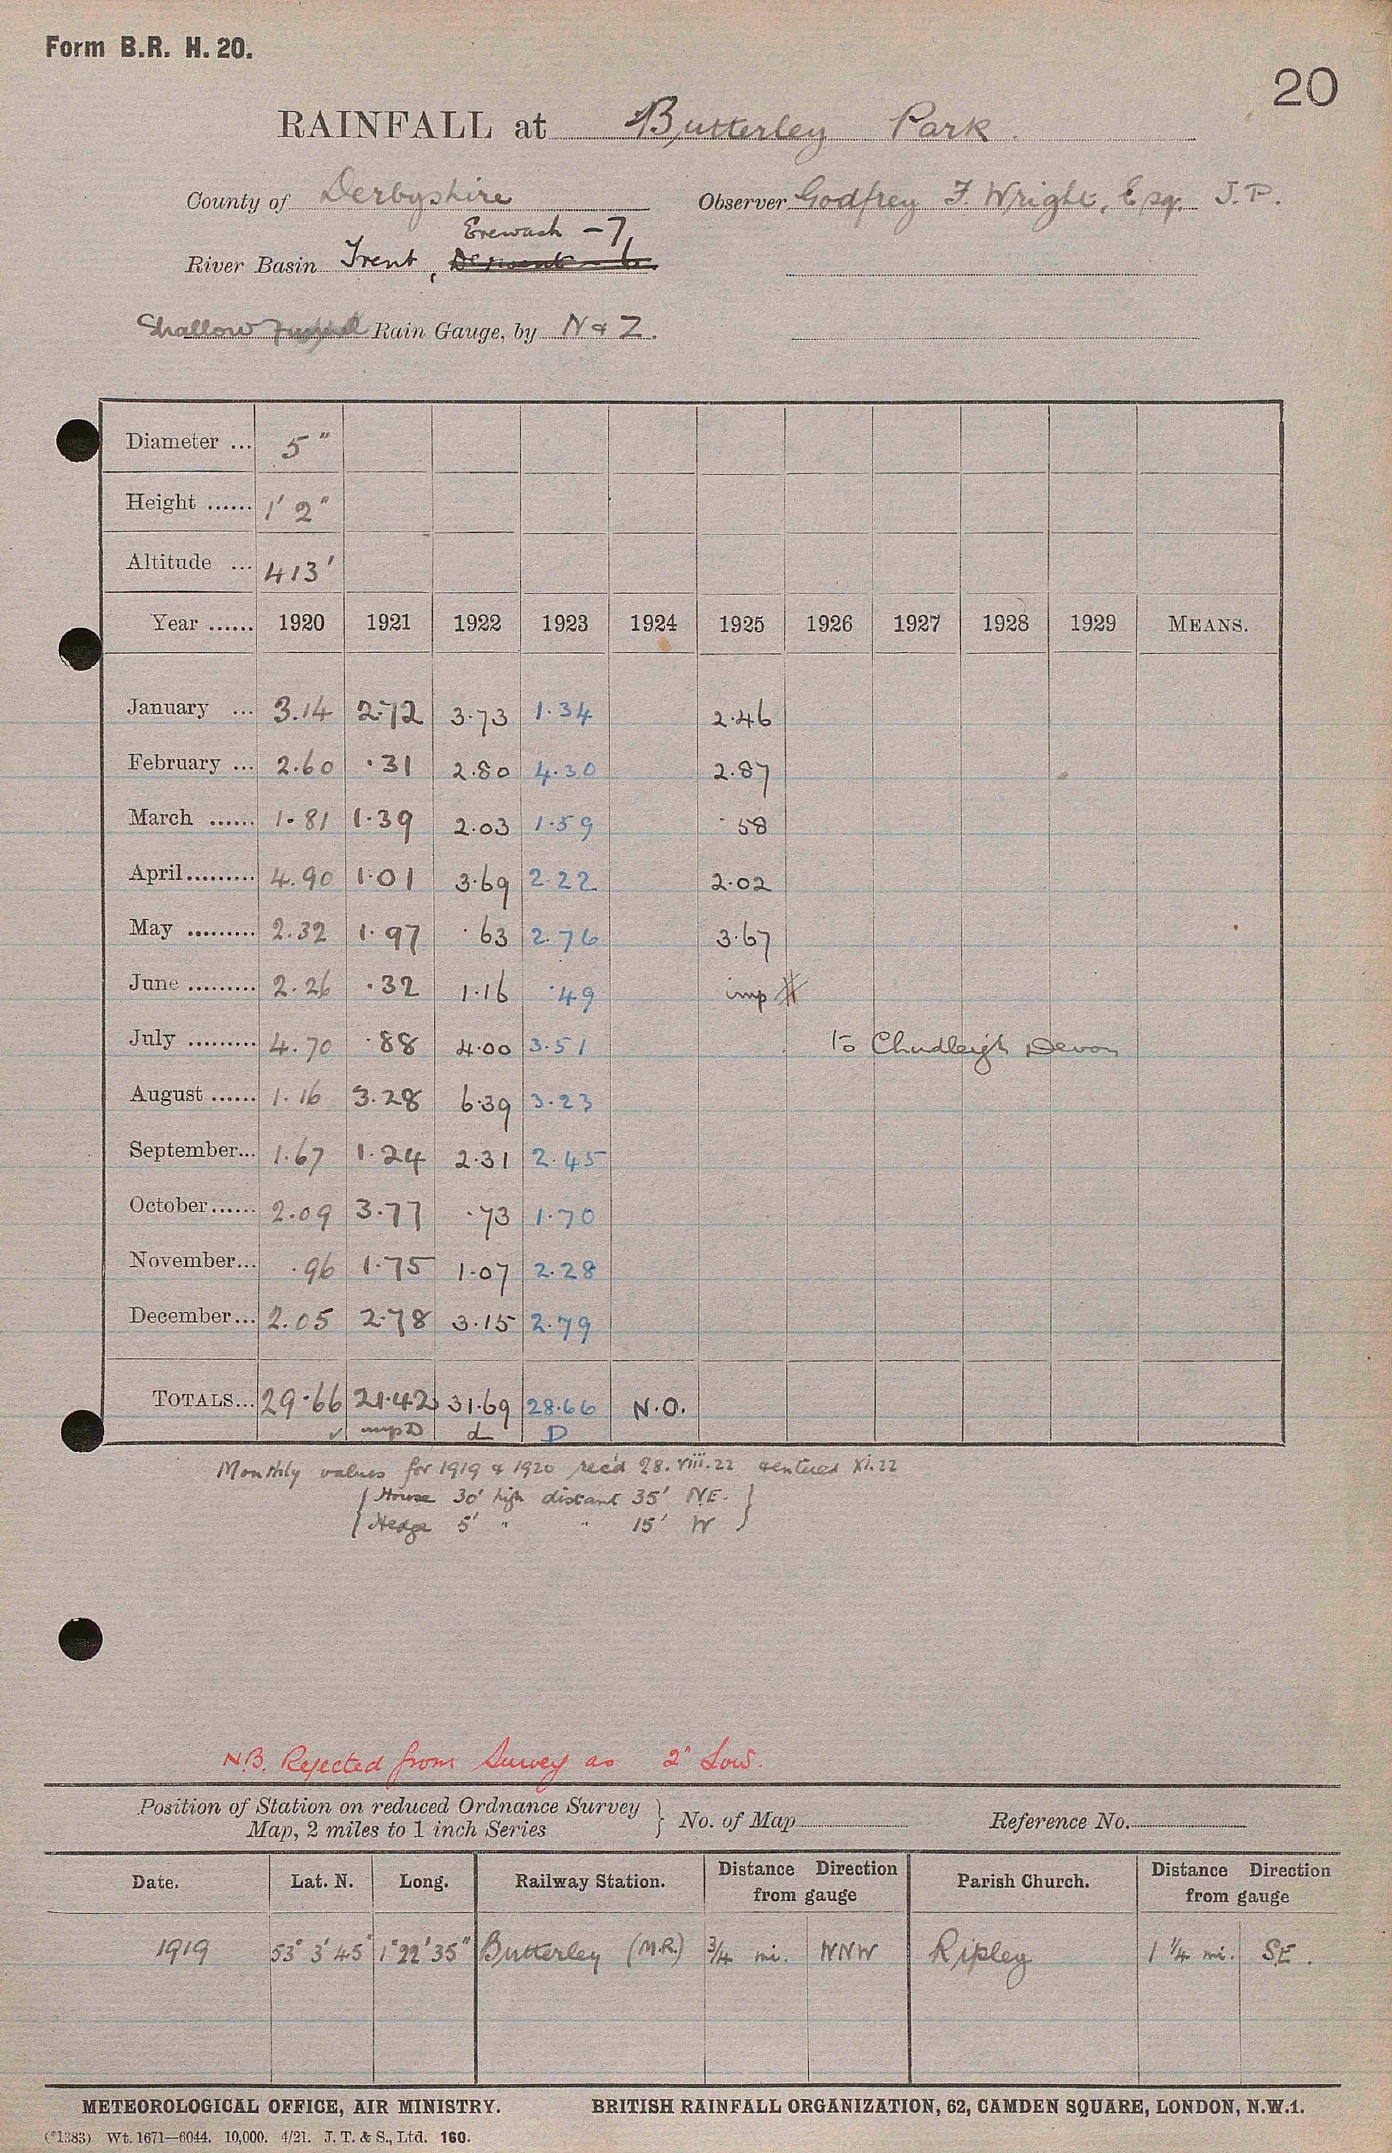 Form B.R. H. 20.
20
RAINFALL at Butterley Park.
County of Derbyshire Observer Godfrey F. Wright, Esq. J.P.
Erewash - 7
River Basin Trent, Derwent - 6
Shallow Funnel Rain Gauge, by N & Z.
Diameter ... 5"
Height ...... 1' 2"
Altitude ... 413'
Year ...... 1920 1921 1922 1923 1924 1925 1926 1927 1928 1929 MEANS.
January ... 3.14 2.72 3.73 1.34 2.46
February ... 2.60 .31 2.80 4.30 2.87
March ...... 1.81 1.39 2.03 1.59 .58
April ......... 4.90 1.01 3.69 2.22 2.02
May ......... 2.32 1.97 .63 2.76 3.67
June ......... 2.26 .32 1.16 .49 imp
July ......... 4.70 .88 4.00 3.51 to Chudleigh Devon
August ...... 1.16 3.28 6.39 3.23
September... 1.67 1.24 2.31 2.45
October ...... 2.09 3.77 .73 1.70
November... .96 1.75 1.07 2.28
December... 2.05 2.78 3.15 2.79
TOTALS... 29.66 21.42 31.69 28.66 N.O.
✓ imp D d D
Monthly values for 1919 & 1920 rec'd 28.viii.22 & entered XI.22
{ House 30' high distant 35' NE. }
{ Hedge 5' " " 15' W }
N.B. Rejected from Survey as 2" Low.
Position of Station on reduced Ordnance Survey
Map, 2 miles to 1 inch Series } No. of Map Reference No.
Date. Lat. N. Long. Railway Station. Distance Direction from gauge Parish Church. Distance Direction from gauge
1919 53° 3' 45" 1° 22' 35" Butterley (M.R.) 3/4 mi. WNW Ripley 1 1/4 mi. SE.
METEOROLOGICAL OFFICE, AIR MINISTRY. BRITISH RAINFALL ORGANIZATION, 62, CAMDEN SQUARE, LONDON, N.W.1.
(*1383) Wt. 1671—6044. 10,000. 4/21. J. T. & S., Ltd. 160.